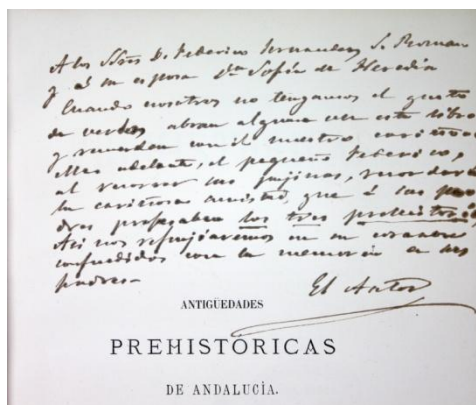 A los Sres D. Federico Fernandez S. Roman
y á su esposa Da Sofía de Heredia
Cuando nosotros no tengamos el gusto
de verles abran alguna vez este libro
y recuerden con él nuestro cariño
Mas adelante, el pequeño Federico,
al recorrer sus pájinas, recordará
la cariñosa amistad, que á sus pa
dres profesaban los tres prehistóricos,
Asi nos refujiaremos en su corazon
confundidos con la memoria de sus
padres-
El Autor
ANTIGÜEDADES
PREHISTÓRICAS
DE ANDALUCÍA.